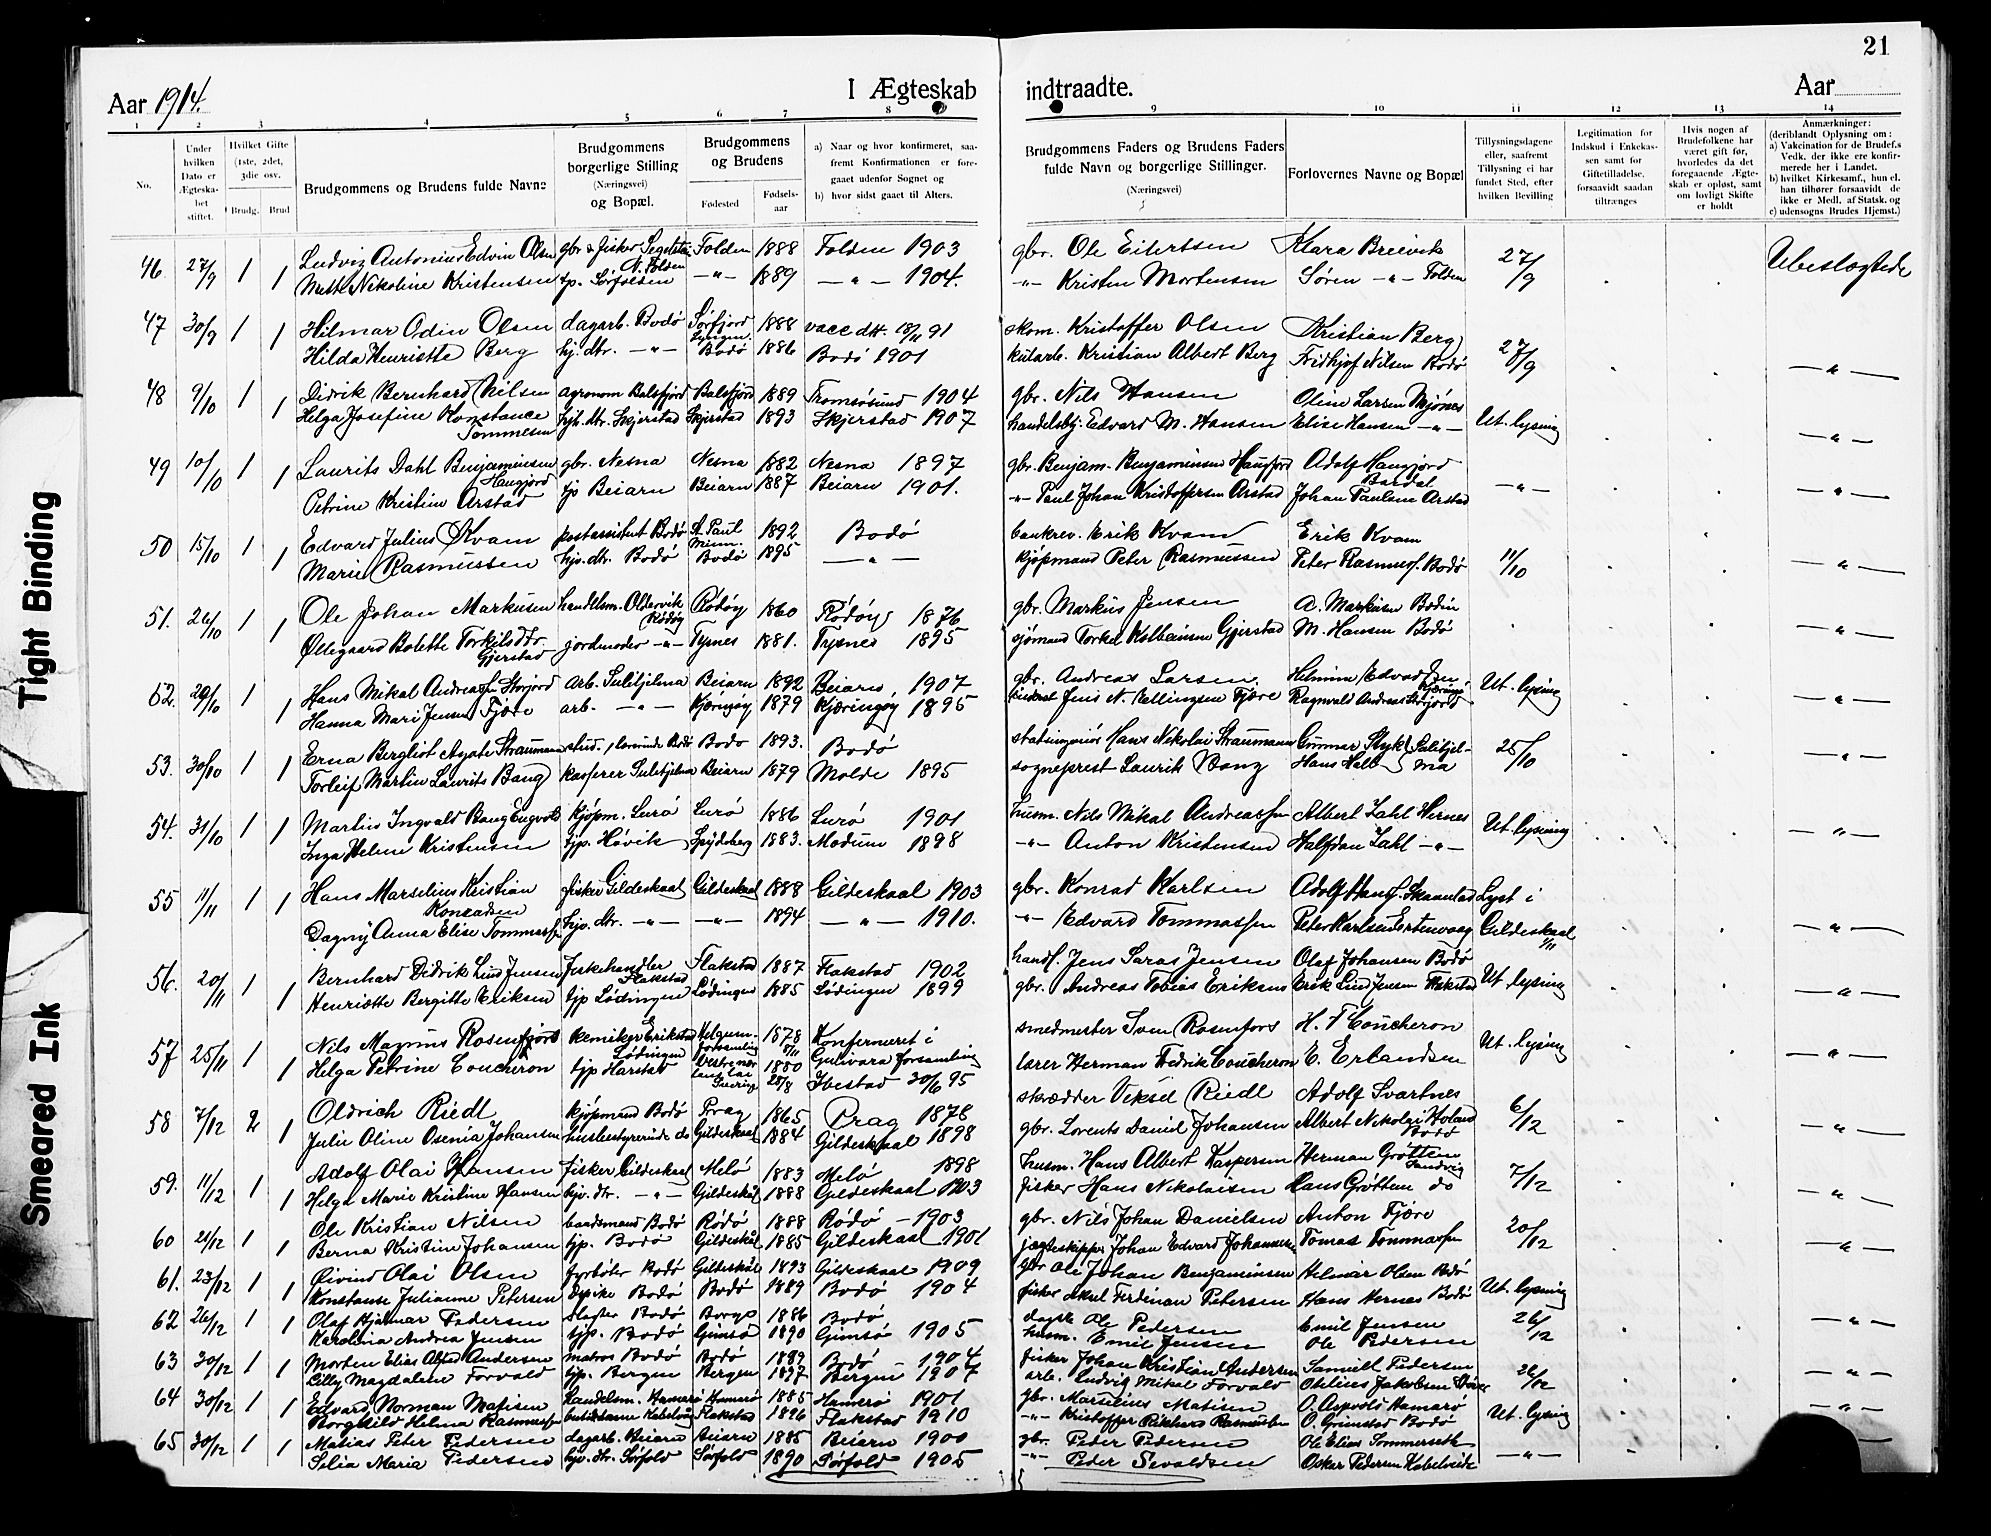 21
Aar 1914. I Ægteskab indtraadte. Aar
1 2 3 4 5 6 7 8 9 10 11 12 13 14
No.
Under hvilken Dato er Ægteskabet stiftet.
Hvilket Gifte (1ste, 2det, 3die osv.
Brudg. Brud
Brudgommens og Brudens fulde Navne
Brudgommens borgerlige Stilling (Næringsvei) og Bopæl.
Brudgommens og Brudens
Fødested
Fødsels-aar
a) Naar og hvor konfirmeret, saafremt Konfirmationen er foregaaet udenfor Sognet og
b) hvor sidst gaaet til Alters.
Brudgommens Faders og Brudens Faders fulde Navn og borgerlige Stillinger.
(Næringsvei)
Forlovernes Navne og Bopæl
Tillysningsdagene eller, saafremt Tillysning ei har fundet Sted, efter hvilken Bevilling
Legitimation for Indskud i Enkekassen samt for Giftetilladelse, forsaavidt saadan tiltrænges
Hvis nogen af Brudefolkene har været gift før, hvorledes da det foregaaende Ægteskab er opløst, samt om lovligt Skifte er holdt
Anmærkninger: (deriblandt Oplysning om: a) Vakcination for de Brudef.s Vedk. der ikke ere konfirmerede her i Landet. b) hvilket Kirkesamf., hun el. han tilhører forsaavidt de ikke er Medl. af Statsk. og c) udensogns Brudes Hjemst.)
46. 27/9 1 1 Ludvig Antonius Edvin Olsen gbr. & fisker N. Folden Folden 1888 Folden 1903 gbr. Ole Eilertsen Klara Breivik 27/9 Ubeslægtede
Mette Nikoline Kristensen tp. Sørfolden -"- 1889 -"- 1904. -"- Kristen Mortensen Søren -"- Folden
47 30/9 1 1 Hilmar Odin Olsen dagarb. Bodø Sørfjord Lyngen 1888 vacc. dtt. 18/11 91 skom. Kristoffer Olsen Kristian Berg 27/9 -"-
Hilda Henriette Berg hj. dtr. -"- Bodø 1886 Bodø 1901 kularb. Kristian Albert Berg Fridhjof Nilsen Bodø
48 9/10 1 1 Didrik Bernhard Nilsen agronom Balsfjord Balsfjord 1889 Tromsøsund 1904 gbr. Nils Hansen Oline Larsen Mjønes Ut. lysing -"-
Helga Josefine Konstance Tommesen hj. dtr. Skjerstad Skjerstad 1893 Skjerstad 1907 handelsbj. Edvard M. Hansen Elise Hansen -"-
49 10/10 1 1 Laurits Dahl Benjaminsen Haugfjord gbr. Nesna Nesna 1882 Nesna 1897 gbr. Benjam. Benjaminsen Haugfjord Adolf Haugfjord -"- -"-
Petrine Kristine Arstad tp Beiarn Beiarn 1887 Beiarn 1901. -"- Paul Johan Kristoffersen Arstad Johan Paulsen Arstad
50 15/10 1 1 Edvard Julius Kvam postassistent Bodø St. Paul Minn. 1892 Bodø bankrev. Erik Kvam Erik Kvam 11/10 -"-
Marie Rasmussen hjv. dtr. Bodø Bodø 1895 -"- kjøpmand Peter Rasmussen Peter Rasmuss. Bodø
51. 26/10 1 1 Ole Johan Markusen handelsm. Oldervik Rødøy Rødøy 1860 Rødøy 1876 gbr. Markus Jensen A. Markusen Bodin -"-
Øllegaard Bolette Torkilsdtr. Gjerstad jordmoder -"- Tysnes 1881. Tysnes 1895 sjømand Torkel Kolbeinsen Gjerstad M. Hansen Bodø
52. 29/10 1 1 Hans Mikal Andreassen Storjord arb. Sulitjelma Beiarn 1892 Beiarn 1907 gbr. Andreas Larsen Ut. lysing -"-
Hanna Mari Jensen Fjøre arb. -"- Kjøringøy 1879 Kjæringøy 1895 Jens N. Kellingsen Fjære Ragnvald Andreass. Storjord
53. 30/10 1 1 Erna Bergliot Agate Straumann stud. Bodø Bodo 1893. Bodø Hans Nikolai Straumann Gunnar Slyk 25/10 -"-
Torleif Martin Laurits Bang kasserer Sulitjelma Beiarn 1879 Molde 1895 sogneprest Laurik Bang Hans Hall Sulitjelma
54. 31/10 1 1 Martin Ingvald Bang Engvold kjøpm. Lurø Lurø 1886 Lurø 1901 husm. Nils Mikal Andreassen Albert Zahl Hernes Ut. lysing -"-
Inga Helene Kristensen tjp. Høvik Spydeberg 1883. Modum 1898 -"- Anton Kristensen Halfdan Zahl -"-
55 11/11 1 1 Hans Marselius Kristian Konradsen fisker Gildeskaal Gildeskaal 1888 Gildeskaal 1903 gbr. Konrad Karlsen Adolf Hans. Skaanstad Lyst i Gildeskaal -"-
Dagny Anna Elise Tommassen hjv. dtr. -"- -"- 1894 -"- 1910. -"- Edvard Tommassen Peter Karlsen Ertenvaag
56. 20/11 1 1 Bernhard Didrik Lind Jensen fiskehandler Flakstad Flakstad 1887 Flakstad 1902 handl. Jens Saras Jensen Olaf Johansen Bodø Ut. lysing -"-
Henriette Bergitte Eriksen tjp Lødingen Lødingen 1885 Lødingen 1899 gbr. Andreas Tobias Eriksen Erik Lind Jensen Flakstad
57 25/11 1 1 Nils Magnus Rosenfors kemiker Erikstad Lødingen forsamling 1878 Konfermeret i Gellivara forsamling smedmester Sven Rosenfors H. F. Coucheron Ut. lysing -"-
Helga Petrine Coucheron tjp Harstad 1880 Ibestad 30/6 95 lærer Herman Fredrik Coucheron E. Erlandsen
58 7/12 2 1 Oldrich Riedl kjøpmand Bodø Prag 1865 Prag 1878 skrædder Veksel Riedl Adolf Svartnes 6/12 -"-
Julie Oline Osenia Johansen husbestyrerinde do Gildeskaal 1884 Gildeskaal 1898 gbr. Lorents Daniel Johansen Albert Nikolai Holand Bodø
59. 11/12 1 1 Adolf Olai Hansen fisker Gildeskaal Melø 1883 Melø 1898 husm. Hans Albert Kaspersen Herman Grøtten Sandvig 7/12 -"-
Helga Marie Kristine Hansen hjv. dtr. -"- Gildeskål 1888 Gildeskaal 1903 fisker Hans Nikolaisen Hans Grøtten do
60 21/12 1 1 Ole Kristian Nilsen baadsmand Bodø Rødø 1888 Rødø - 1903 gbr. Nils Johan Danielsen Anton Fjære 20/12 -"-
Berna Kristine Johansen tjp. Bodø Gildeskål 1885 Gildeskaal 1901 jagteskipper Johan Edvard Johannesen Tomas Tommassen
61. 23/12 1 1 Øivind Olai Olsen fyrbøter Bodø Gildeskål 1893 Gildeskaal 1909 gbr Ole Johan Benjaminsen Hilmar Olsen Bodø Ut. lysing
Konstanse Julianne Petersen Bodø Bodø 1889 Bodø 1904 fisker Aksel Ferdinan Petersen Hans Hernes Bodø
62 26/12 1 1 Olaf Hjalmar Pedersen Bodø Borge 1886 Bodø Ole Pedersen Emil Jensen 26/12 -"-
Karolina Andrea Jensen tjp. Bodø Gimsø 1890 Gimsø 1905 husm. Emil Jensen Ole Pedersen
63 30/12 1 1 Morten Elias Alfred Andersen matros Bodø Bodø 1889 Bodø - 1904 fisker Johan Kristian Andersen Samuell Pedersen 26/12 -"-
Lilly Magdalene Forvald tjp. Bergen Bergen 1897 Bergen - 1907 arb. Ludvig Mikal Forvald Othilius Jakobsen
64 30/12 1 1 Edvard Norman Matisen handelsm. Hamarø Hamerø 1885 Hamerø 1901 gbr. Marselius Matisen O. Aspvold Hamarø Ut. lysing -"-
Borghild Helena Rasmussen Flakstad 1896 Flakstad 1910 -"- Kristoffer Rikhard Rasmussen O. Grimstad Bodø
65 30/12 1 1 Matias Peter Pedersen dagarb. Beiarn Beiarn 1885 Beiarn 1900 gbr. Peder Pedersen Ole Elias Sommerseth -"-
Selia Maria Pedersen hjv. dtr. Sørfold Sørfold 1890 Sørfold 1905 -"- Peder Sivaldsen Oskar Pedersen Kobelveide
Tight Binding
Smeared Ink